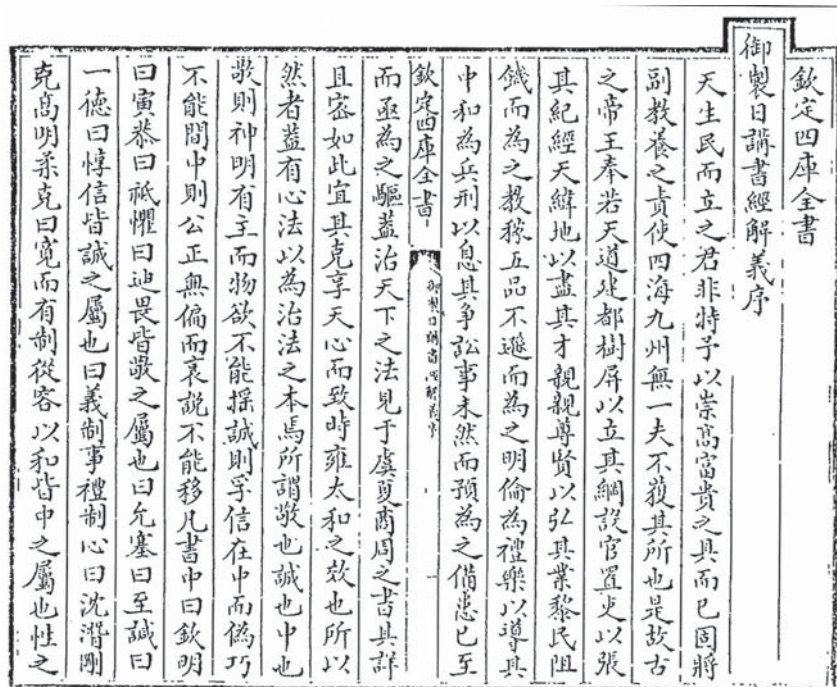 欽定四庫全書
御製日講書經解義序
天生民而立之君非特予以崇髙富貴之具而已固將
副教養之責使四海九州無一夫不獲其所也是故古
之帝王奉若天道建都樹屏以立其綱設官置吏以張
其紀經天緯地以盡其才親親尊賢以弘其業黎民阻
饑而為之教稼五品不遜而為之明倫為禮樂以導其
中和為兵刑以息其爭訟事未然而預為之備患已至
欽定四庫全書
御製日講書經解義序
而亟為之驅葢治天下之法見于虞夏商周之書其詳
且宻如此宜其克享天心而致時雍太和之效也所以
然者葢有心法以為治法之本焉所謂敬也誠也中也
敬則神明有主而物欲不能揺誠則孚信在中而偽巧
不能間中則公正無偏而衺說不能移凡書中曰欽明
曰寅恭曰祗懼曰廸畏皆敬之屬也曰允塞曰至諴曰
一徳曰惇信皆誠之屬也曰義制事禮制心曰沈潛剛
克髙明柔克曰寛而有制從容以和皆中之屬也性之